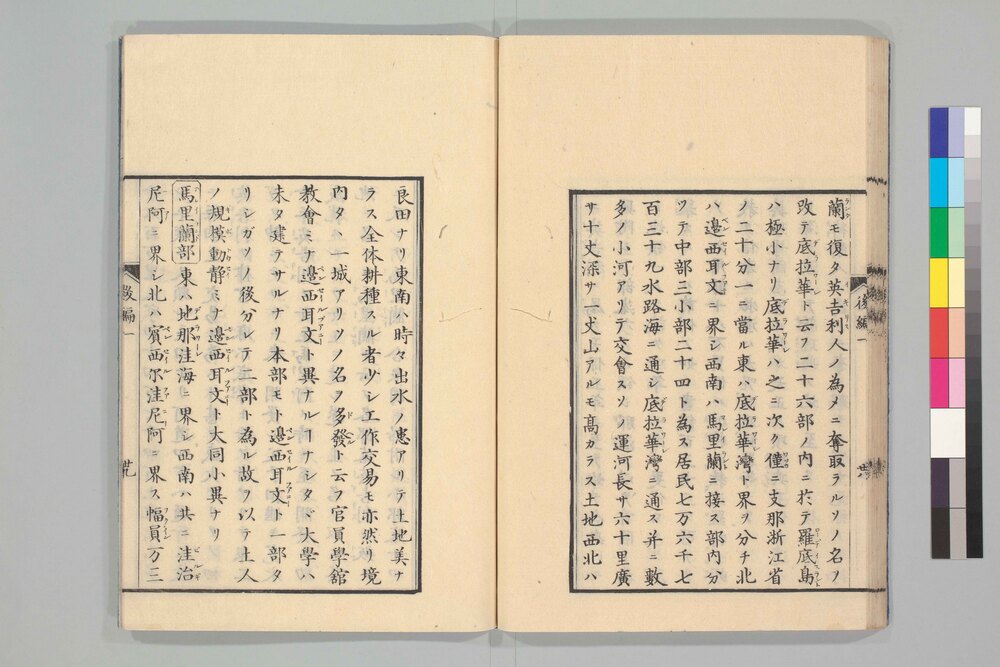 蘭モ復タ英吉利人ノ為メニ奪取ラルソノ名ノ
改テ底拉華ト云フ二十六部ノ内ニ於テ羅底島
ハ極小ナリ底拉華ハ之ニ次ク僅ニ支那浙江省
ノ二十分一ニ當ル東ハ底拉華灣ト界ヲ分チ北
ハ邊西耳文ニ界シ西南ハ馬里蘭ニ接ス部内分
ツテ中部三小部二十四ト為ス居民七万六千七
百三十九水路海ニ通シ底拉華灣ニ通ス并ニ數
多ノ小河アリテ交會スソノ運河長サ六十里廣
サ十丈深サ丈山アルモ高カラス土地西北ハ
後編一
良田ナリ東南ハ時々出水ノ患アリテ土地美ナ
ラス全体耕種スル者少シ工作交易モ亦然リ境
内タヽ一城アリソノ名ヲ多發ト云フ官員學舘
教會ミナ邊西耳文ト異ナルヿナシタヾ大學ハ
未タ建テサルナリ本部モト邊西耳文ト一部タ
リシガソノ後分レテ二部ト為ル故ヲ以テ土人
ノ規模動静ミナ邊西耳文ト大同小異ナリ
馬里蘭部東ハ地那洼海ニ界シ西南ハ共ニ洼治
尼阿ニ界シ北ハ賓西尓洼尼阿ニ界ス幅員万三
後編一
廿九